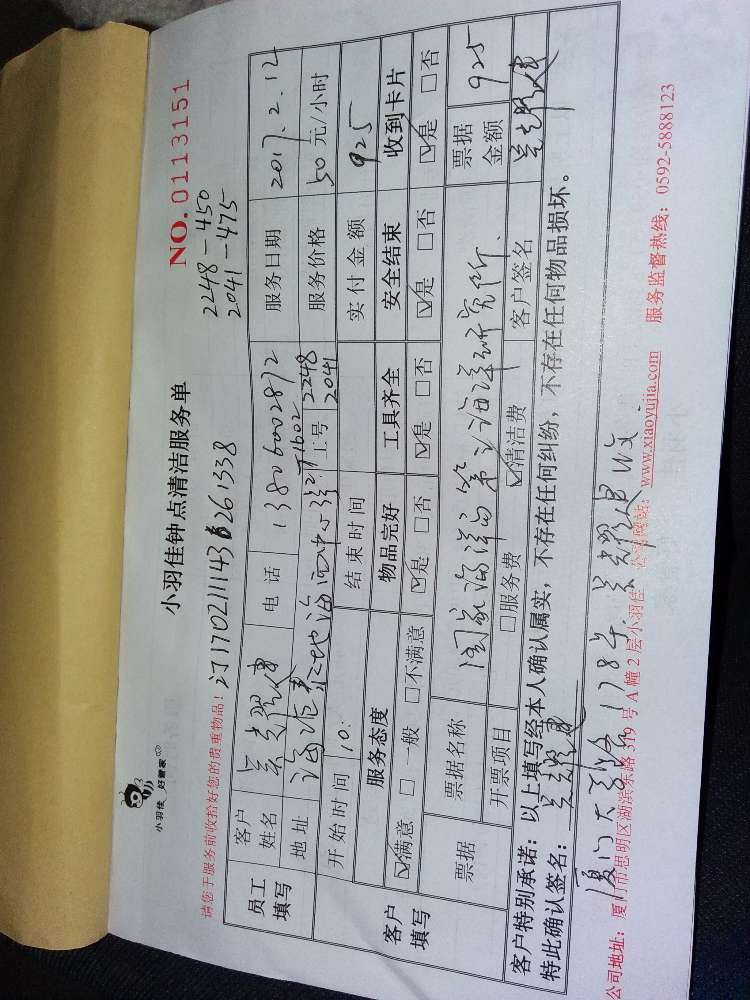 小羽佳 好管家
小羽佳钟点清洁服务单
NO.0113151
请您于服务前收拾好您的贵重物品!
订170211143 261338
2248-450
2041-475
员工填写
客户姓名
吴耀建
电话
13806002872
服务日期
2017.2.12
地址
工号
2248
2041
服务价格
50元/小时
开始时间
10:
结束时间
实付金额
925
客户填写
服务态度
物品完好
工具齐全
安全结束
收到卡片
☑满意 □一般 □不满意
☑是 □否
☑是 □否
☑是 □否
☑是 □否
票据
票据名称
国家海洋局第三海洋研究所
票据金额
925
开票项目
□服务费
☑清洁费
客户签名
吴耀建
客户特别承诺:以上填写经本人确认属实,不存在任何纠纷,不存在任何物品损坏。
特此确认签名:吴耀建
厦门大学路178号 吴耀建收
公司地址:厦门市思明区湖滨东路319号A幢2层小羽佳 公司网站:www.xiaoyujia.com 服务监督热线:0592-5888123